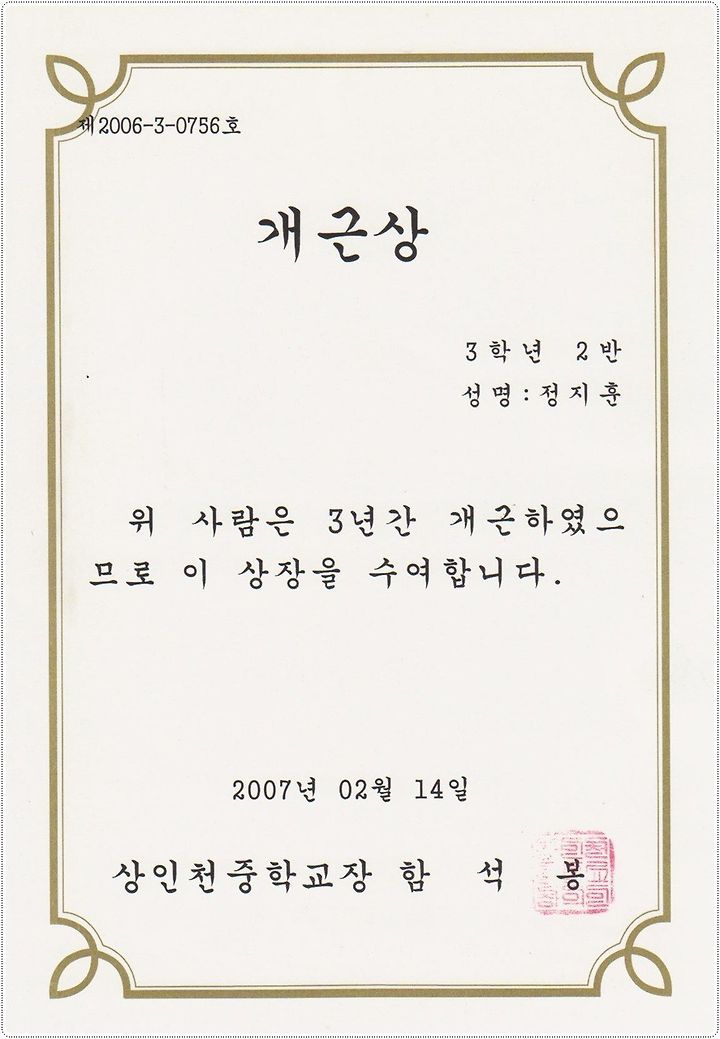 제2006-3-0756호
개근상
3학년 2반
성명:정지훈
위 사람은 3년간 개근하였으
므로 이 상장을 수여합니다.
2007년 02월 14일
상인천중학교장 함 석 봉